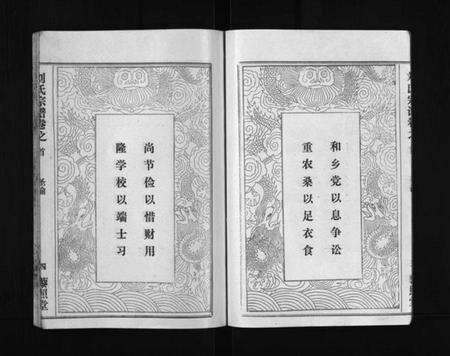 和乡党以息争讼
重农桑以足衣食
尚节俭以惜财用
隆学校以端士习
刘氏宗谱卷之首
圣谕
四
藜照堂